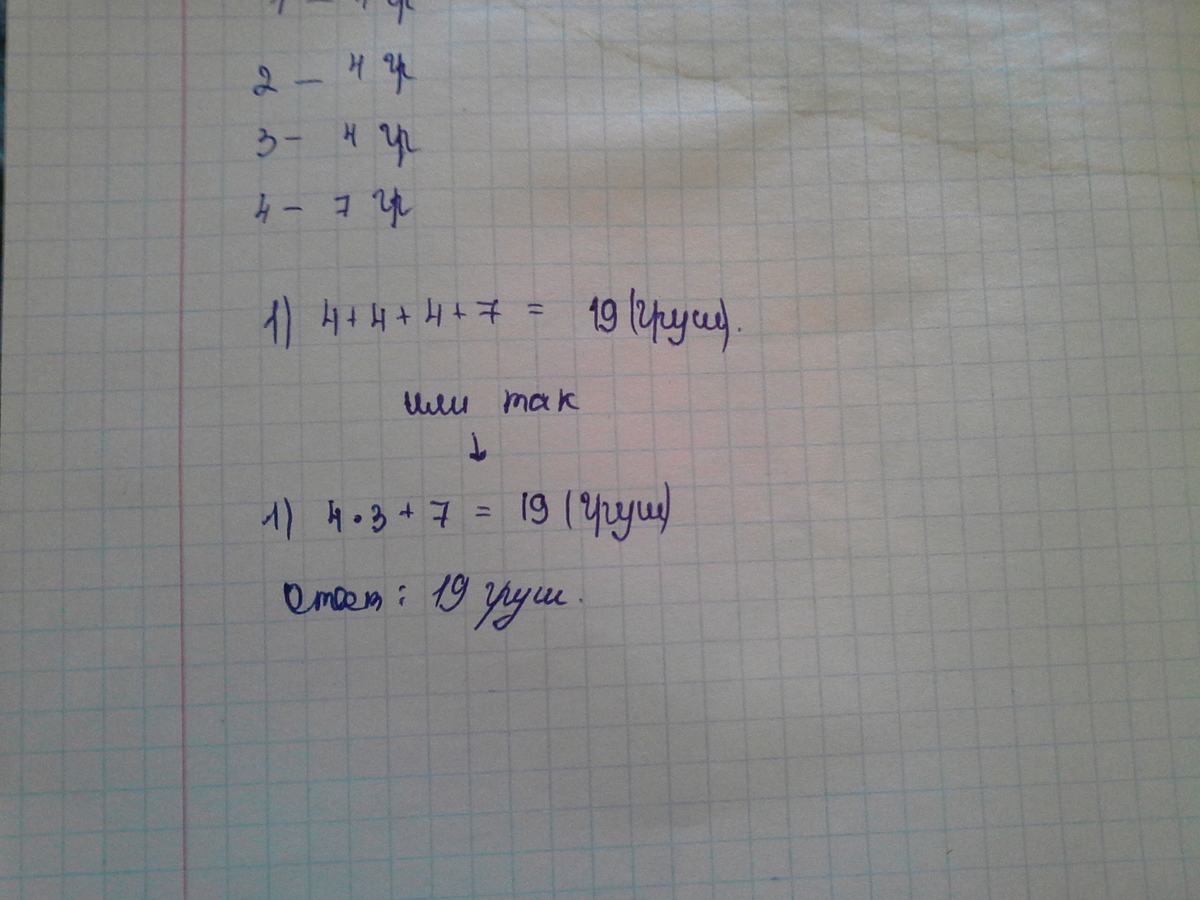 2 - 4 гр
3 - 4 гр
4 - 7 гр
1) 4 + 4 + 4 + 7 = 19 (груш).
или так
↓
1) 4 · 3 + 7 = 19 (груш)
Ответ: 19 груш.